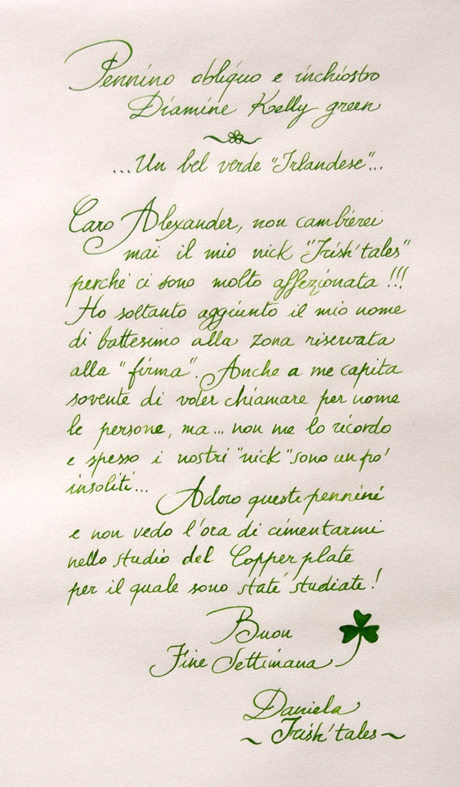 Pennino obliquo e inchiostro
Diamine Kelly green
...Un bel verde "Irlandese"...
Caro Alexander, non cambierei
mai il mio nick "Irish'tales"
perché ci sono molto affezionata !!!
Ho soltanto aggiunto il mio nome
di battesimo alla zona riservata
alla "firma". Anche a me capita
sovente di voler chiamare per nome
le persone, ma... non me lo ricordo
e spesso i nostri "nick" sono un po'
insoliti...
Adoro questi pennini
e non vedo l'ora di cimentarmi
nello studio del Copperplate
per il quale sono state studiate!
Buon
Fine Settimana
Daniela
~ Irish'tales ~